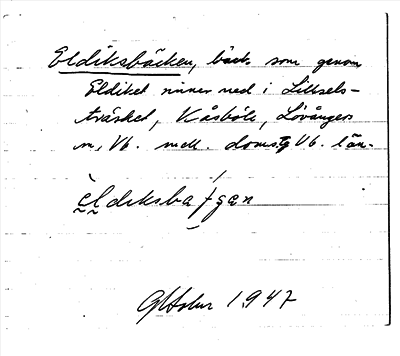 Eldiksbäcken, bäck som genom
Eldiket rinner ned i Lillsels-
träsket, Kåsböle, Lövångers
sn, Vb. mell. doms. Vb. län.
eldiksbaʃʃgæn
1947